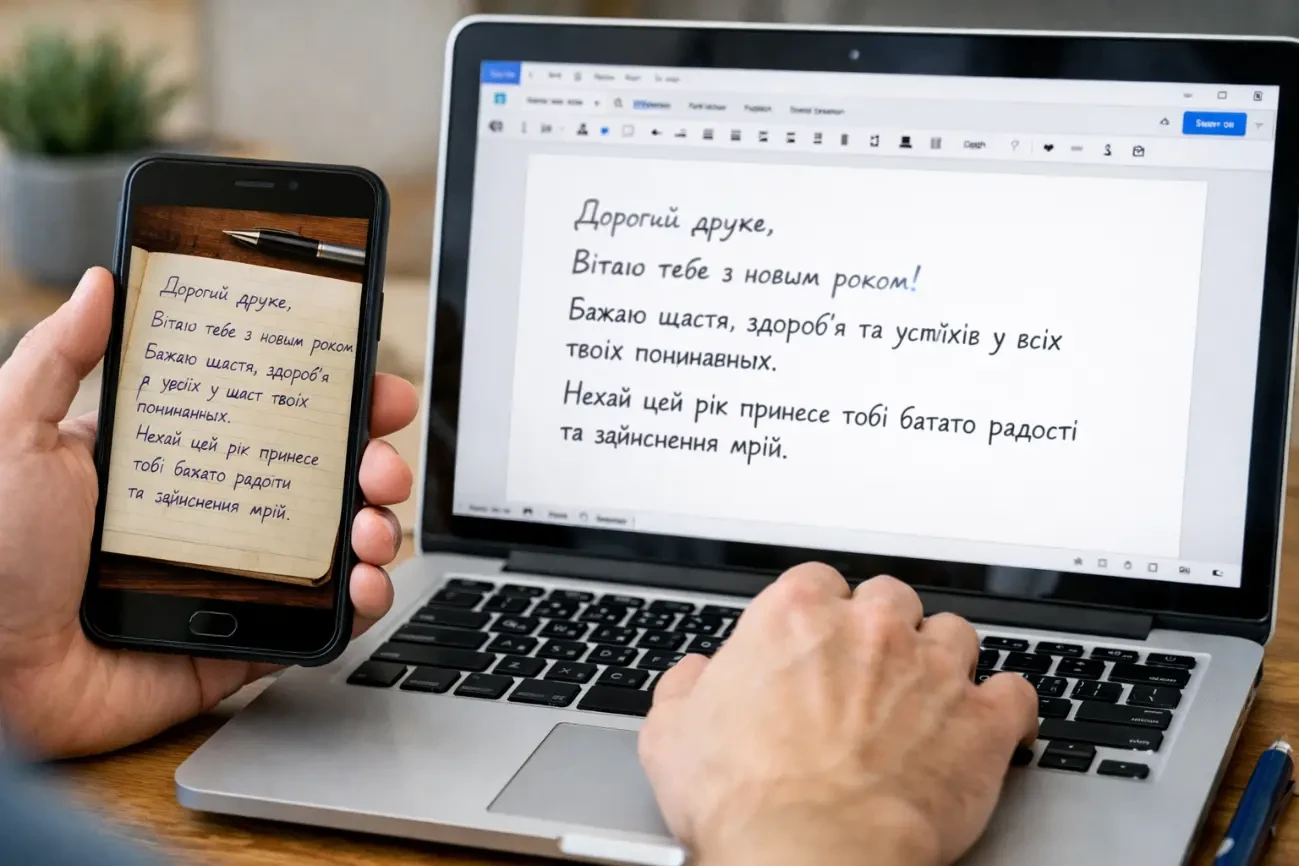 Дорогий друке,
Вітаю тебе з новым роком
Бажаю щастя, здороб'я
у щаст твоїх
понинанных.
Нехай цей рік принесе
тобі бахато радоіти
та зайиснення мрій.
Дорогий друке,
Вітаю тебе з новым роком!
Бажаю щастя, здороб'я та успіхів у всіх
твоїх понинавных.
Нехай цей рік принесе тобі батато радості
та зайнснення мрій.